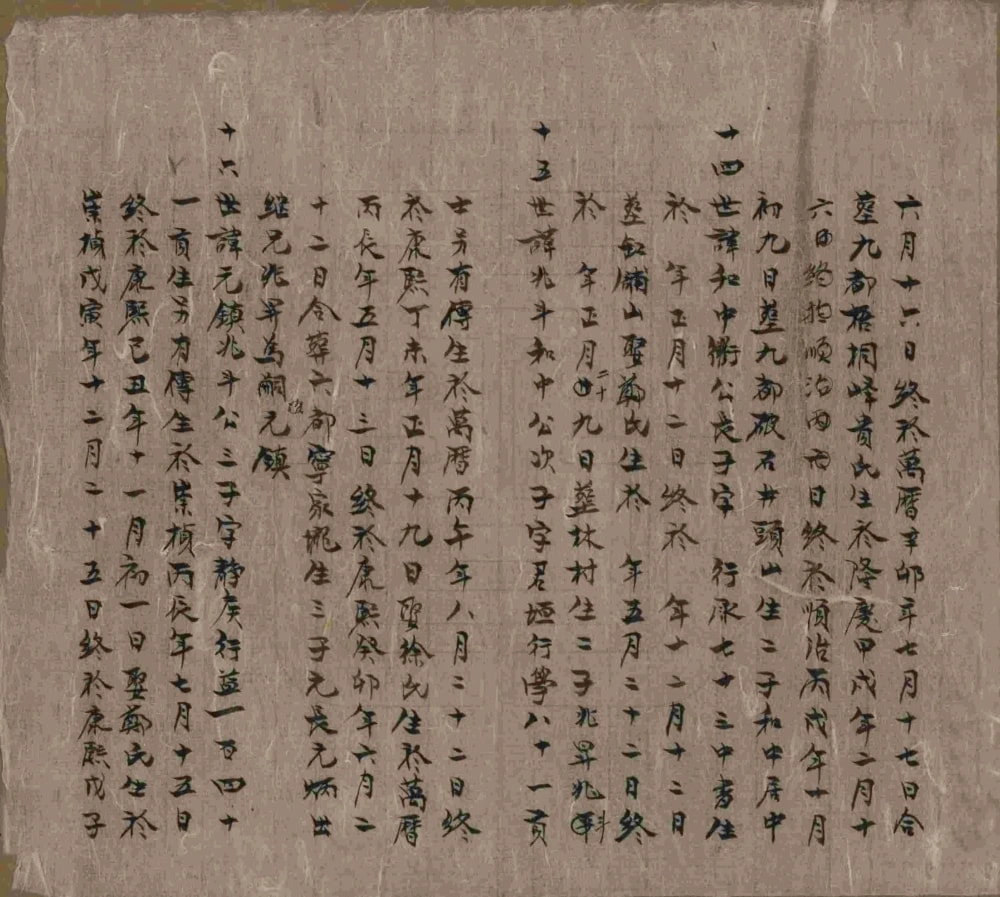 六月十六日終於萬曆辛卯年七月十七日合
塟九都梧桐峰黃氏生於隆慶甲戌年二月十
六日 順治丙 日終於順治丙戌年十月
初九日塟九都破石井頭山生二子和中居中
十四世諱和中衛公長子字 行承七十三中書生
於 年正月十二日終於 年十二月十二日
塟 鋪山娶鄭氏生於 年五月二十二日終
於 年正月二十九日塟林村生二子兆昇兆斗
十五世諱兆斗和中公次子字君垣行學八十一貢
士另有傳生於萬曆丙午年八月二十二日終
於康熙丁未年正月十九日娶徐氏生於萬曆
丙辰年五月十三日終於康熙癸卯年六月二
十二日合葬六都寧家壠生三子元長元炳出
繼兄兆昇為嗣元鎮
十六世諱元鎮兆斗公三子字靜庚行益一百四十
一貢生另有傳生於崇禎丙辰年七月十五日
終於康熙己丑年十一月初一日娶鄭氏生於
崇禎戊寅年十二月二十五日終於康熙戊子